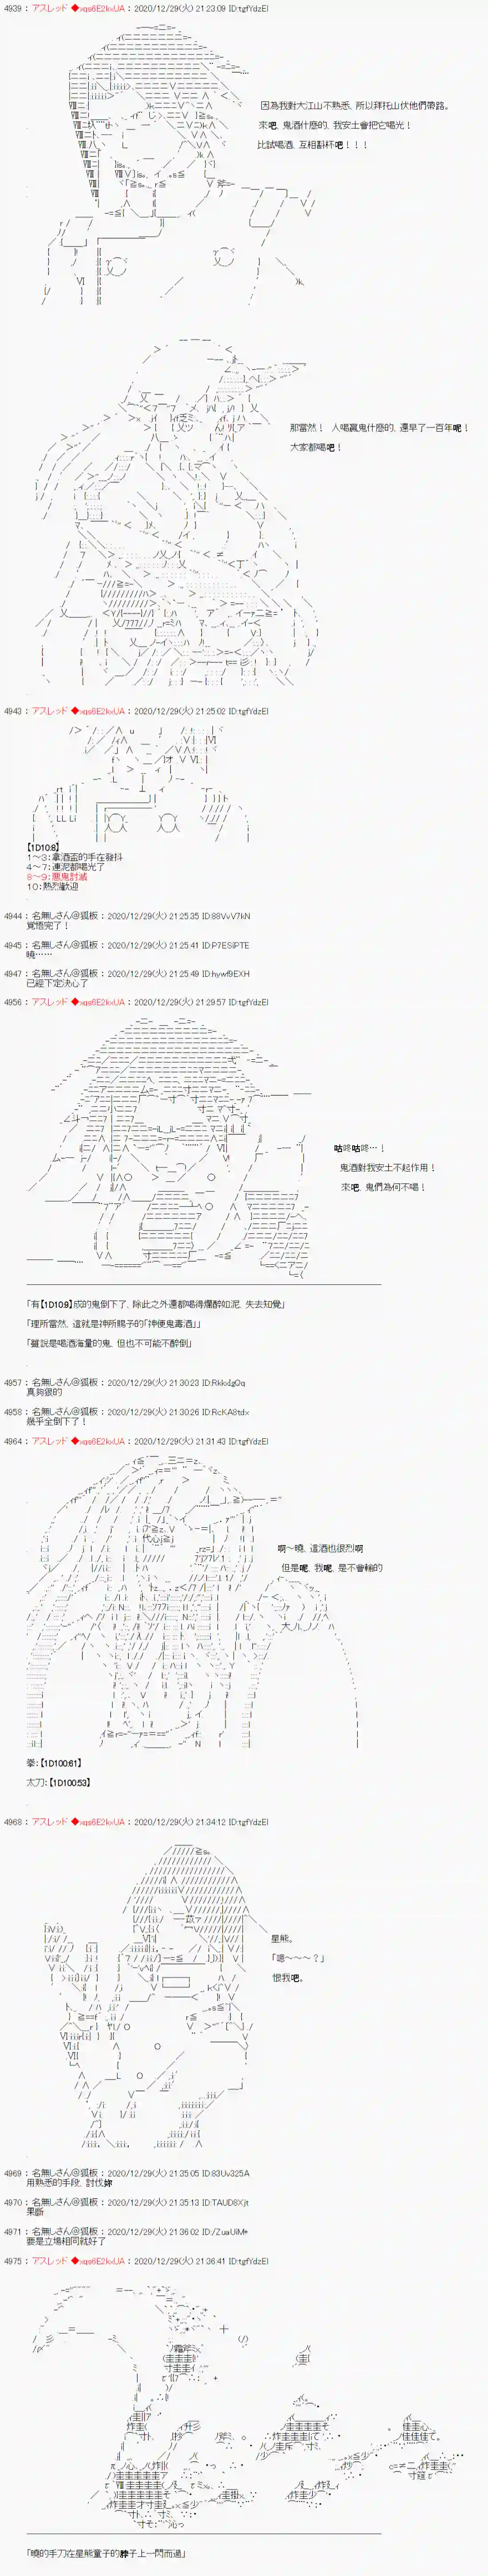 4939 : アスレッド ◆xqs6E2kxUA : 2020/12/29(火) 21:23:09 ID:tgfYdzEI
因為我對大江山不熟悉、所以拜托山伏他們帶路。
來吧、鬼酒什麼的、我安土會把它喝光！
比試喝酒、互相斟杯吧！！！
那當然！ 人喝贏鬼什麼的、還早了一百年呢！
大家都喝吧！
4943 : アスレッド ◆xqs6E2kxUA : 2020/12/29(火) 21:25:02 ID:tgfYdzEI
【1D10:8】
1～3：拿酒盃的手在發抖
4～7：連泥都喝光了
8～9：悪鬼討滅
10：熱烈歡迎
4944 : 名無しさん＠狐板 : 2020/12/29(火) 21:25:35 ID:88VvV7kN
覚悟完了！
4945 : 名無しさん＠狐板 : 2020/12/29(火) 21:25:41 ID:P7ESiPTE
曉……
4947 : 名無しさん＠狐板 : 2020/12/29(火) 21:25:49 ID:hywf9EXH
已經下定決心了
4956 : アスレッド ◆xqs6E2kxUA : 2020/12/29(火) 21:29:57 ID:tgfYdzEI
咕咚咕咚…！
鬼酒對我安土不起作用！
來吧、鬼們為何不喝！
「有【1D10:9】成的鬼倒下了、除此之外還都喝得爛醉如泥、失去知覺」
「理所當然、這就是神所賜予的「神便鬼毒酒」」
「雖說是喝酒海量的鬼、但也不可能不醉倒」
4957 : 名無しさん＠狐板 : 2020/12/29(火) 21:30:23 ID:RkkxIgQq
真夠狠的
4958 : 名無しさん＠狐板 : 2020/12/29(火) 21:30:26 ID:RcKA8tdx
幾乎全倒下了！
4964 : アスレッド ◆xqs6E2kxUA : 2020/12/29(火) 21:31:43 ID:tgfYdzEI
啊～曉、這酒也很烈啊
但是呢、我呢、是不會輸的
拳：【1D100:61】
太刀：【1D100:53】
4968 : アスレッド ◆xqs6E2kxUA : 2020/12/29(火) 21:34:12 ID:tgfYdzEI
星熊。
「嗯～～～？」
恨我吧。
4969 : 名無しさん＠狐板 : 2020/12/29(火) 21:35:05 ID:83Uv325A
用熟悉的手段、討伐妳
4970 : 名無しさん＠狐板 : 2020/12/29(火) 21:35:13 ID:TAUD8Xjt
果斷
4971 : 名無しさん＠狐板 : 2020/12/29(火) 21:36:02 ID:/ZuaUiM+
要是立場相同就好了
4975 : アスレッド ◆xqs6E2kxUA : 2020/12/29(火) 21:36:41 ID:tgfYdzEI
「曉的手刀在星熊童子的脖子上一閃而過」